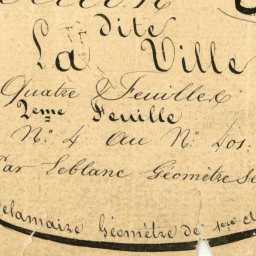 dite
La Ville
Quatre Feuilles
2eme Feuille
Nº 4 au Nº 401.
Par Leblanc Géomètre
Delamaire Géomètre de 1ere cl